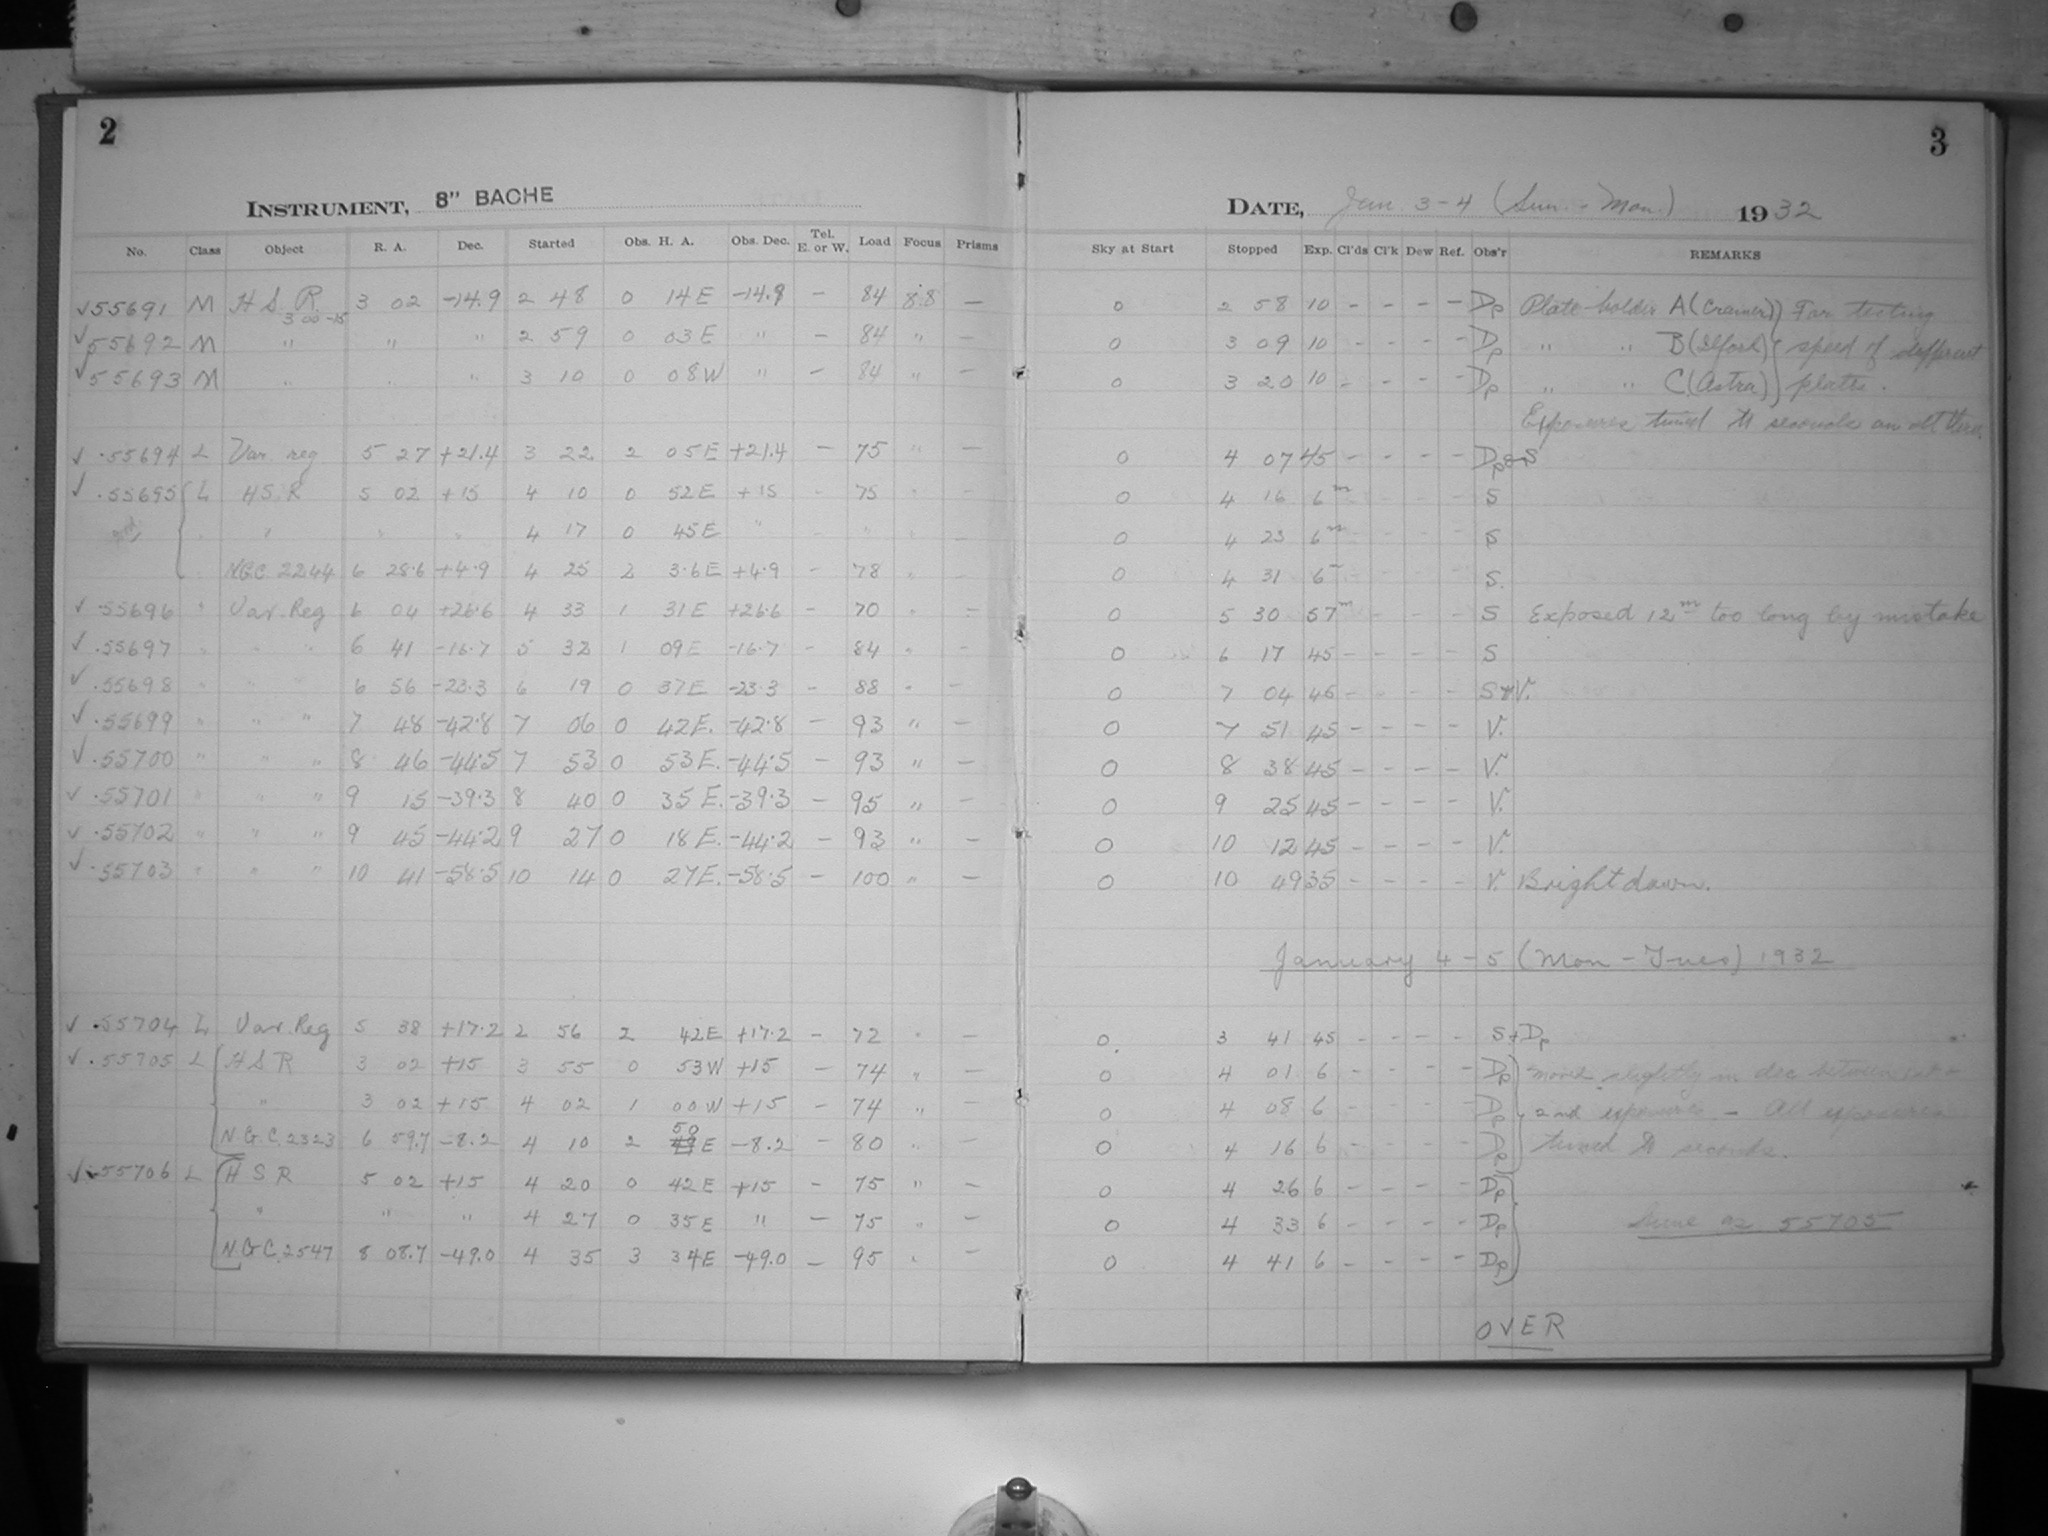 2
3
INSTRUMENT, 8" BACHE
DATE, Jan. 3-4 (Sun. - Mon.) 1932
No. Class Object R. A. Dec. Started Obs. H. A. Obs. Dec. Tel. E. or W. Load Focus Prisms Sky at Start Stopped Exp. Cl'ds Cl'k Dew Ref. Obs'r REMARKS
√55691 M H S. R. 3 00 -15 3 02 -14.9 2 48 0 14E -14.9 - 84 8.8 - 0 2 58 10 - - - - Dp Plate-holder A (Cramer) } For testing
√55692 M " " " 2 59 0 03E " - 84 " - 0 3 09 10 - - - - Dp " " B (Ilford) } speed of different
√55693 M " " " 3 10 0 08W " - 84 " - 0 3 20 10 - - - - Dp " " C (Astra) } plates.
Exposures timed to seconds on all three.
√ .55694 L Var. reg 5 27 +21.4 3 22 2 05E +21.4 - 75 " - 0 4 07 45 - - - - Dp & S
√ .55695 L H S. R 5 02 +15 4 10 0 52E +15 - 75 " - 0 4 16 6m - - - - S
" " " " 4 17 0 45E " - " " - 0 4 23 6m - - - - S
NGC 2244 6 28.6 +4.9 4 25 2 3.6E +4.9 - 78 " - 0 4 31 6 - - - - S.
√ .55696 " Var. Reg 6 04 +26.6 4 33 1 31E +26.6 - 70 " - 0 5 30 57m - - - - S Exposed 12m too long by mistake
√ .55697 " " " 6 41 -16.7 5 32 1 09E -16.7 - 84 " - 0 6 17 45 - - - - S
√ .55698 " " " 6 56 -23.3 6 19 0 37E -23.3 - 88 " - 0 7 04 45 - - - - S+V.
√ .55699 " " " 7 48 -42.8 7 06 0 42E. -42.8 - 93 " - 0 7 51 45 - - - - V.
√ .55700 " " " 8 46 -44.5 7 53 0 53E. -44.5 - 93 " - 0 8 38 45 - - - - V.
√ .55701 " " " 9 15 -39.3 8 40 0 35E. -39.3 - 95 " - 0 9 25 45 - - - - V.
√ .55702 " " " 9 45 -44.2 9 27 0 18E. -44.2 - 93 " - 0 10 12 45 - - - - V.
√ .55703 " " " 10 41 -58.5 10 14 0 27E. -58.5 - 100 " - 0 10 49 35 - - - - V. Bright dawn.
January 4-5 (Mon - Tues) 1932
√ .55704 L Var. Reg 5 38 +17.2 2 56 2 42E +17.2 - 72 " - 0 3 41 45 - - - - S+Dp
√ .55705 L H S R 3 02 +15 3 55 0 53W +15 - 74 " - 0 4 01 6 - - - - Dp moved slightly in dec between 1st &
" 3 02 +15 4 02 1 00W +15 - 74 " - 0 4 08 6 - - - - Dp 2nd exposures - All exposures
N.G.C. 2323 6 59.7 -8.2 4 10 2 50E -8.2 - 80 " - 0 4 16 6 - - - - Dp timed to seconds.
√ .55706 L H S R 5 02 +15 4 20 0 42E +15 - 75 " - 0 4 26 6 - - - - Dp
" " " 4 27 0 35E " - 75 " - 0 4 33 6 - - - - Dp Same as 55705
N.G.C. 2547 8 08.7 -49.0 4 35 3 34E -49.0 - 95 " - 0 4 41 6 - - - - Dp
OVER